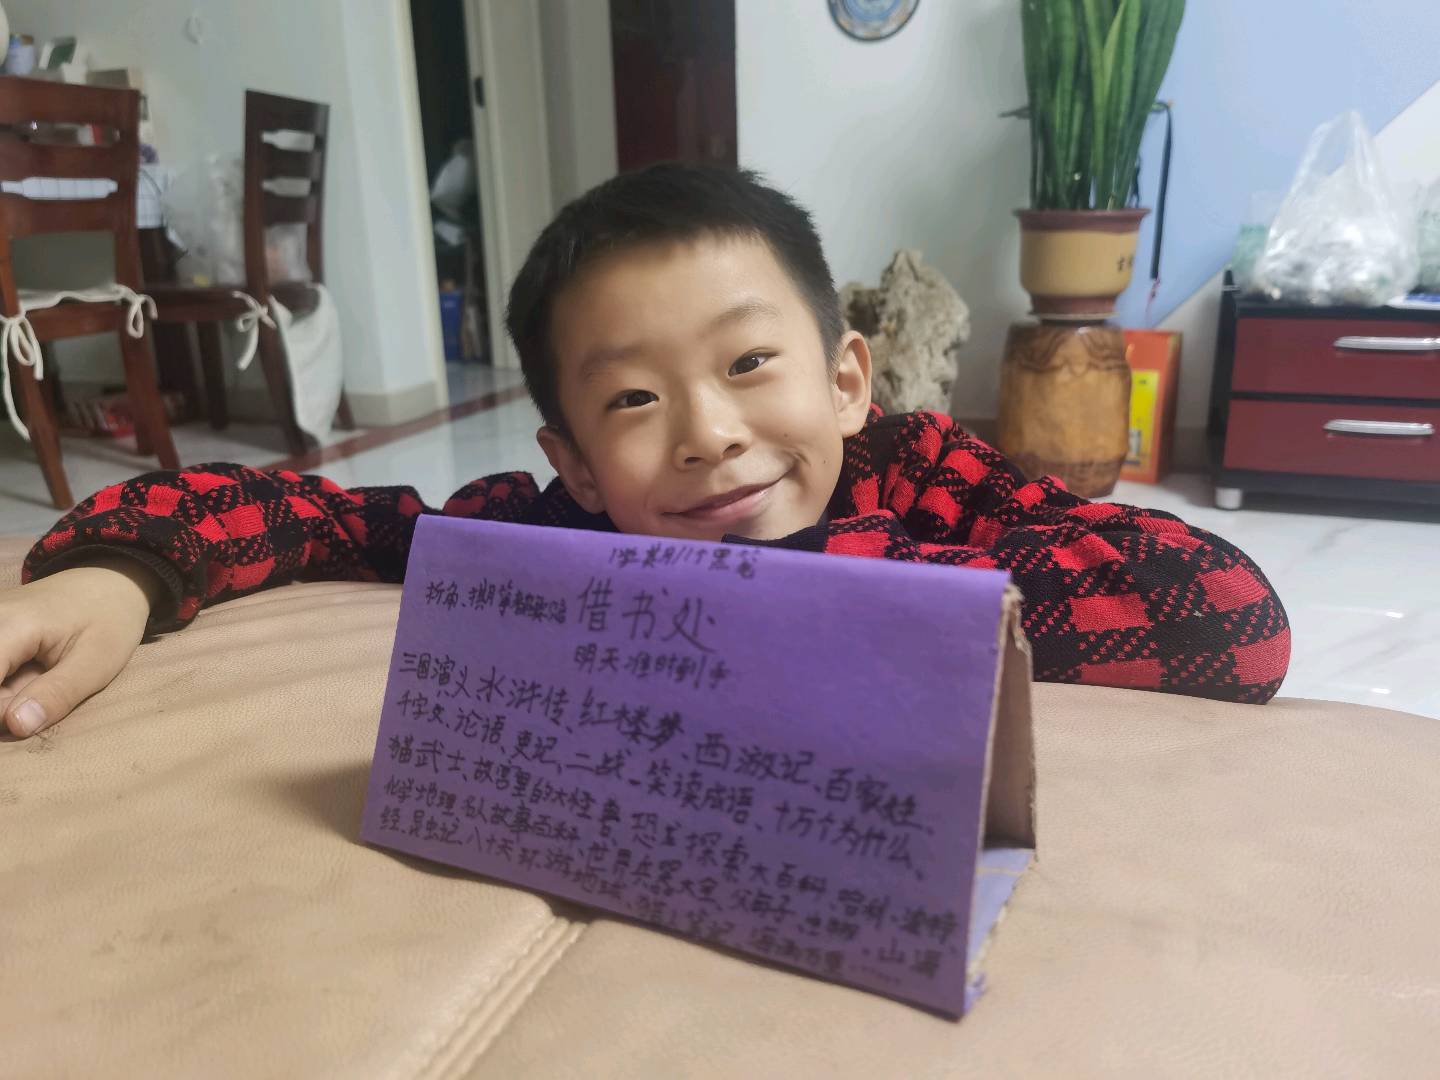 1学期11个黑笔
折角、撕等都要赔
借书处
明天准时到手
三国演义水浒传、红楼梦、西游记、百家姓、
千字文、论语、史记、二战、笑读成语、十万个为什么、
猫武士、故宫里的大怪兽恐龙探索大百科、
化学地理、名人故事百科、世界兵器大全、父与子、山海
经、昆虫记、八十天环游地球、笔记、海底两万里……